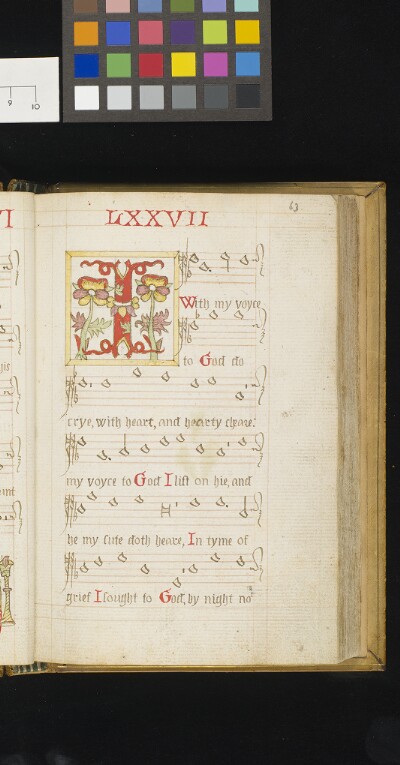 9 10
63
VI
LXXVII
I
With my voyce
to God do
crye, with heart, and hearty cheare:
my voyce to God I lift on hie, and
he my sute doth heare, In tyme of
grief I sought to God, by night no